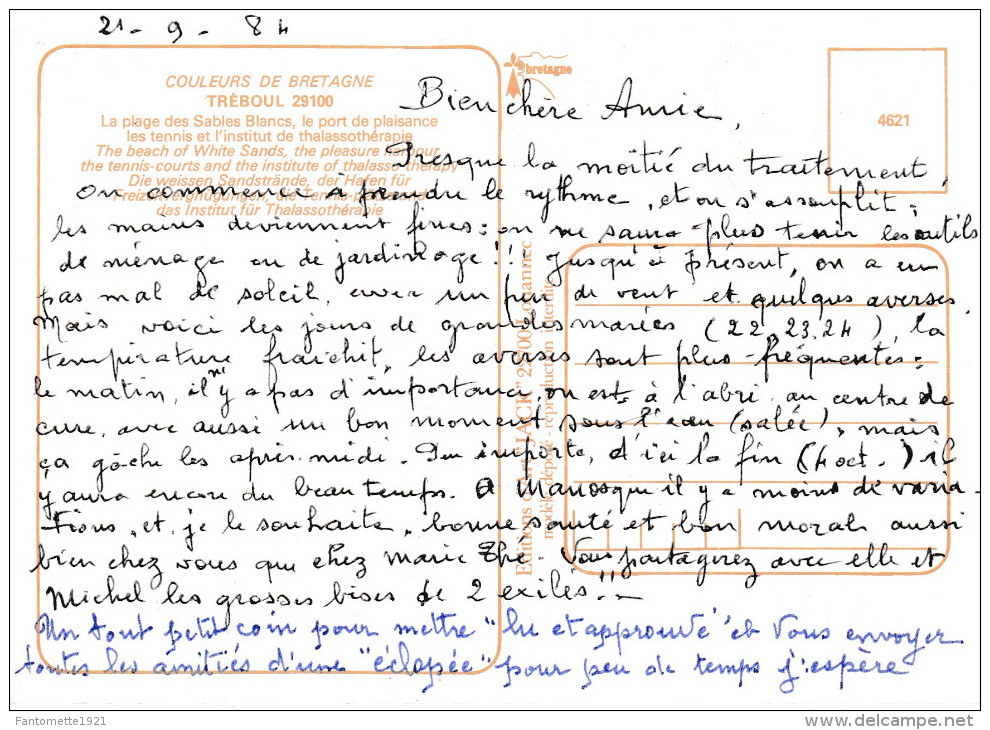 21 - 9 - 84
COULEURS DE BRETAGNE
TRÉBOUL 29100
La plage des Sables Blancs, le port de plaisance
les tennis et l'institut de thalassothérapie
The beach of White Sands, the pleasure harbour
the tennis-courts and the institute of thalassotherapy
Die weissen Sandstrände, der Hafen für
das Institut für Thalassothérapie
bretagne
4621
Bien chère Amie,
Presque la moitié du traitement,
on commence à prendre le rythme, et on s'assouplit ;
les mains deviennent fines : on ne saura plus tenir les outils
de ménage ou de jardinage !!! Jusqu'à présent, on a eu
pas mal de soleil, avec un peu de vent et quelques averses.
Mais voici les jours de grandes marées (22.23.24), la
température fraîchit, les averses sont plus fréquentes :
le matin, il n'y a pas d'importance, on est à l'abri, au centre de
cure, avec aussi un bon moment sous l'eau (salée), mais
ça gâche les après-midi. Peu importe, d'ici la fin (4 oct.) il
y aura encore du beau temps. A Manosque il y a moins de varia-
tions, et, je le souhaite, bonne santé et bon moral aussi
bien chez vous que chez Marie Thé. Vous partagerez avec elle et
Michel les grosses bises de 2 exilés !!
Un tout petit coin pour mettre "lu et approuvé" et vous envoyer
toutes les amitiés d'une "éclopée" pour peu de temps j'espère
Editions d'Art "JACK" Louannec
modèle déposé - reproduction interdite
Fantomette1921
delcampe.net